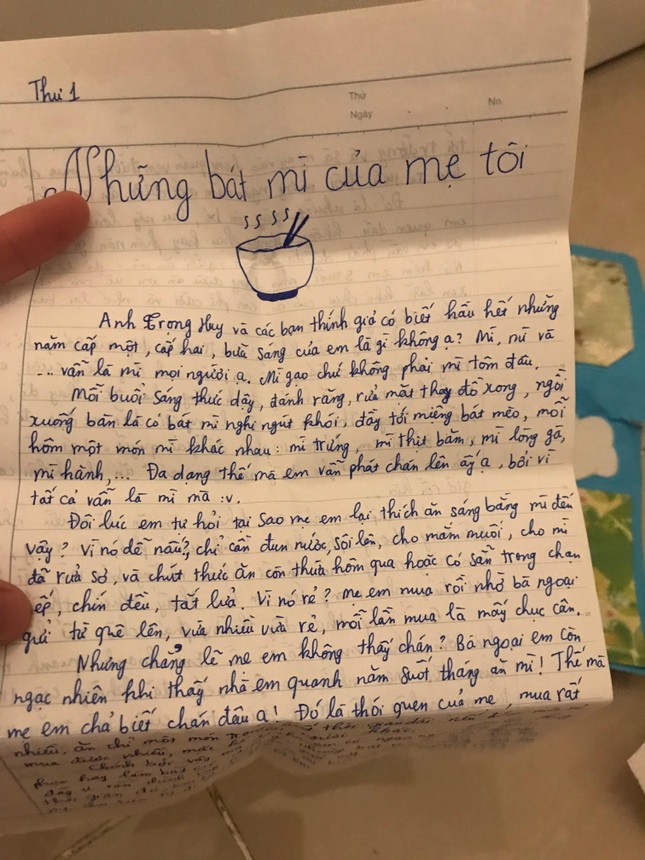 Thư 1
Thứ
Ngày
No.
Những bát mì của mẹ tôi
Anh Trọng Huy và các bạn thính giả có biết hầu hết những
năm cấp một, cấp hai, bữa sáng của em là gì không ạ? Mì, mì và
... vẫn là mì mọi người ạ. Mì gạo chứ không phải mì tôm đâu.
Mỗi buổi sáng thức dậy, đánh răng, rửa mặt thay đồ xong, ngồi
xuống bàn là có bát mì nghi ngút khói, đầy tới miệng bát mẻo, mỗi
hôm một món mì khác nhau: mì trứng, mì thịt bằm, mì lòng gà,
mì hành,... Đa dạng thế mà em vẫn phát chán lên ấy ạ, bởi vì
tất cả vẫn là mì mà :v.
Đôi lúc em tự hỏi tại sao mẹ em lại thích ăn sáng bằng mì đến
vậy? Vì nó dễ nấu?, chỉ cần đun nước, sôi lên, cho mắm muối, cho mì
đã rửa sơ, và chút thức ăn còn thừa hôm qua hoặc có sẵn trong chạn
bếp, chín đều, tắt lửa. Vì nó rẻ? Mẹ em mua rồi nhờ bà ngoại
gửi từ quê lên, vừa nhiều vừa rẻ, mỗi lần mua là mấy chục cân.
Nhưng chẳng lẽ mẹ em không thấy chán? Bà ngoại em còn
ngạc nhiên khi thấy nhà em quanh năm suốt tháng ăn mì! Thế mà
mẹ em chả biết chán đâu ạ! Đó là thói quen của mẹ, mua rất
nhiều, ăn chỉ một món
mua được nhiều,
Chính bởi vậy